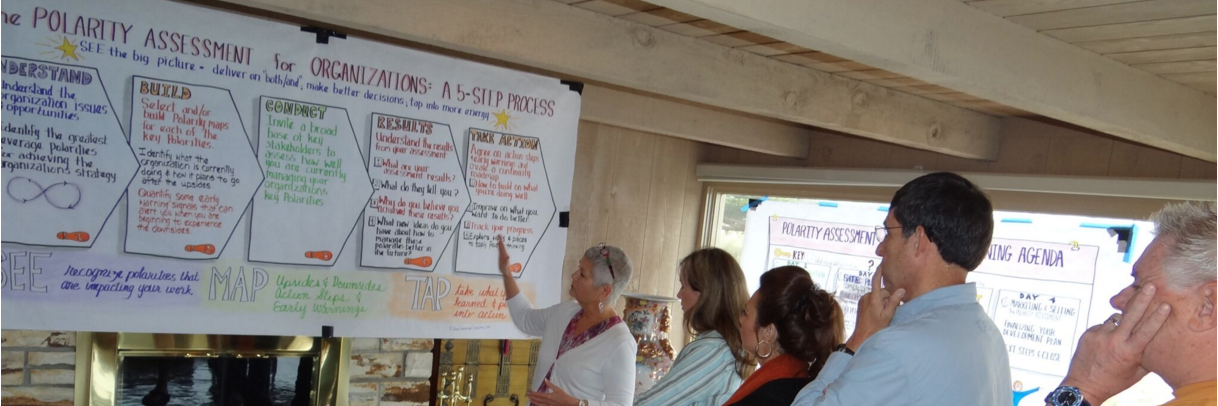 he POLARITY ASSESSMENT for ORGANIZATIONS: A 5-STEP PROCESS
SEE the big picture - deliver on "both/and", make better decisions, tap into more energy
NDERSTAND
understand the
organization issues
opportunities
identify the greatest
everage polarities
or achieving the
rganizations strategy
BUILD
Select and/or
build Polarity maps
for each of the
Key Polarities.
Identify what the
organization is currently
doing & how it plans to go
after the upsides.
Quantify some early
warning signals that can
alert you when you are
beginning to experience
the downsides.
CONDUCT
Invite a broad
base of key
stakeholders to
assess how well
you are currently
managing your
organizations
Key Polarities
RESULTS
Understand the results
from your assessment
What are your
assessment results?
What do they tell you?
Why do you believe you
achieved these results?
What new ideas do you
have about how to
manage these
polarities better in
the future?
TAKE ACTION
Agree on action steps
early warnings and
create a continuity
roadmap
How to build on what
you're doing well.
Improve on what you
want to do better
Track your progress
SEE recognize polarities that
are impacting your work
MAP Upsides & Downsides
Action Steps &
Early Warnings
TAP take what
learned &
into action
POLARITY ASSESSMENT NING AGENDA
KEY
DAY
DAY 4
MARKETING & SELLING
FINALIZING YOUR
DEVELOPMENT PLAN
NEXT STEPS & CLOSE